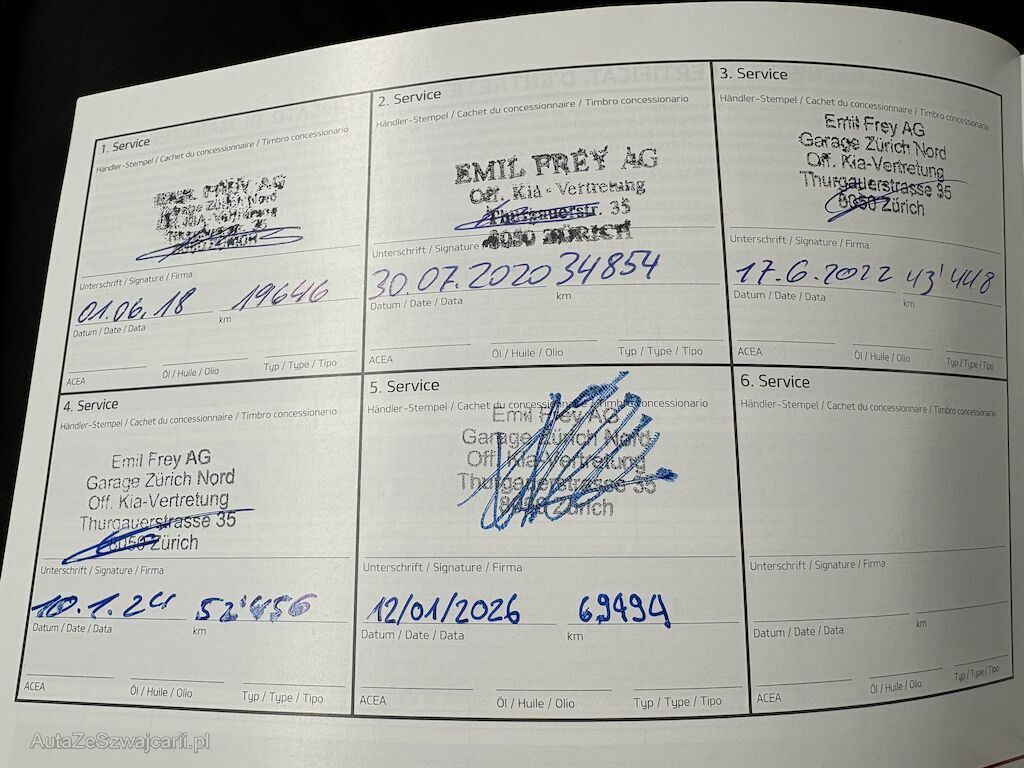 1. Service
Händler-Stempel / Cachet du concessionnaire / Timbro concessionario
Unterschrift / Signature / Firma
01.06.18 19646
Datum / Date / Data km
ACEA Öl / Huile / Olio Typ / Type / Tipo
2. Service
Händler-Stempel / Cachet du concessionnaire / Timbro concessionario
EMIL FREY AG
Off. Kia - Vertretung
Thurgauerstr. 35
8050 ZÜRICH
Unterschrift / Signature
30.07.2020 34854
Datum / Date / Data km
ACEA Öl / Huile / Olio Typ / Type / Tipo
3. Service
Händler-Stempel / Cachet du concessionnaire / Timbro concessionario
Emil Frey AG
Garage Zürich Nord
Off. Kia-Vertretung
Thurgauerstrasse 35
8050 Zürich
Unterschrift / Signature / Firma
17.6.2022 43'448
Datum / Date / Data km
ACEA Öl / Huile / Olio Typ / Type / Tipo
4. Service
Händler-Stempel / Cachet du concessionnaire / Timbro concessionario
Emil Frey AG
Garage Zürich Nord
Off. Kia-Vertretung
Thurgauerstrasse 35
8050 Zürich
Unterschrift / Signature / Firma
10.1.24 52'456
Datum / Date / Data km
ACEA Öl / Huile / Olio Typ / Type / Tipo
5. Service
Händler-Stempel / Cachet du concessionnaire / Timbro concessionario
Emil Frey AG
Garage Zürich Nord
Off. Kia-Vertretung
Thurgauerstrasse 35
8050 Zürich
Unterschrift / Signature / Firma
12/01/2026 69494
Datum / Date / Data km
ACEA Öl / Huile / Olio Typ / Type / Tipo
6. Service
Händler-Stempel / Cachet du concessionnaire / Timbro concessionario
Unterschrift / Signature / Firma
Datum / Date / Data km
ACEA Öl / Huile / Olio Typ / Type / Tipo
AutaZeSzwajcarii.pl